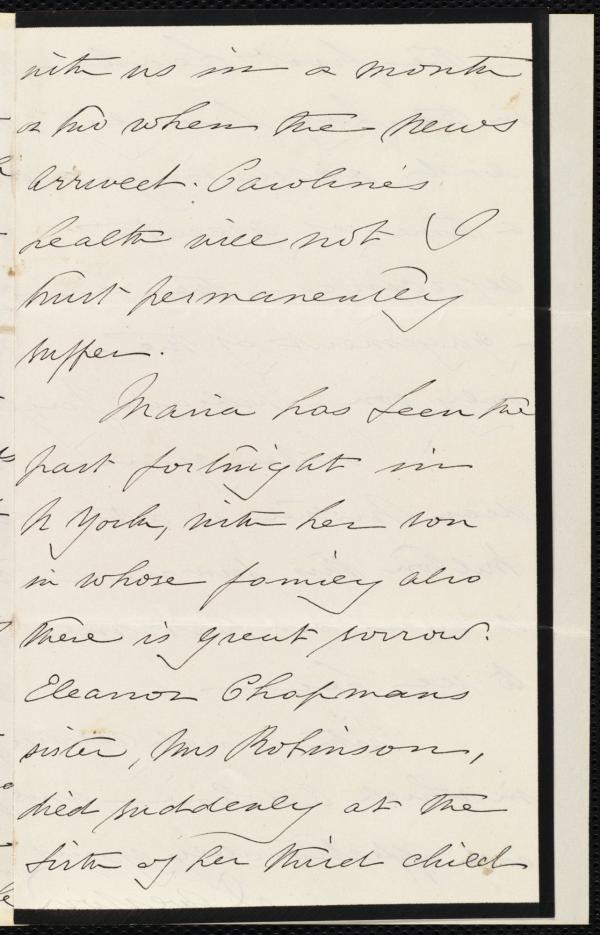 with us in a month
or two when the news
arrived. Caroline's
health will not (I
trust permanently
suffer.
Maria has been the
past fortnight in
N York, with her son
in whose family also
there is great sorrow.
Eleanor Chapmans
sister, Mrs Robinson,
died suddenly at the
birth of her third child